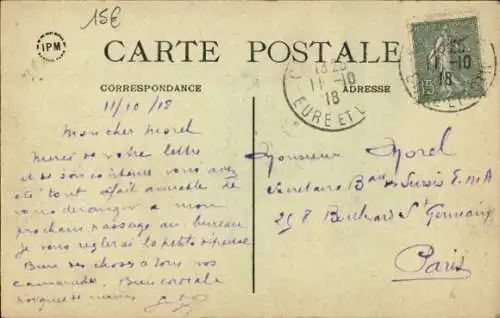 15€
IPM
CARTE POSTALE
CORRESPONDANCE
ADRESSE
13 25
11-10
18
EURE ET L
25
11-10
18
15
11/10/18
Mon cher Morel
Merci de votre lettre
et de son contenu vous avez
été tout à fait aimable de
vous déranger a mon
prochain passage au bureau
je vous reglerai la petite dépense
Bien des choses a tous vos
camarades. Bien cordiale
poignée de mains
Monsieur Morel
Secretaire Bau des Sursis E.M.A
258 Boulevard St Germain
Paris